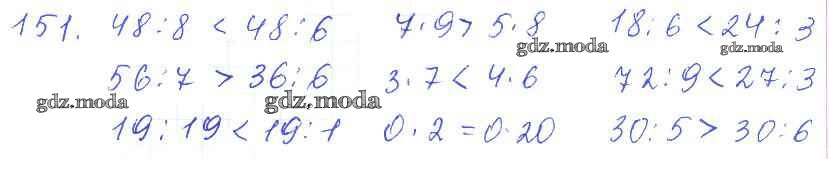 151. 48:8 < 48:6 7·9 > 5·8 18:6 < 24:3
gdz.moda gdz.moda
56:7 > 36:6 3·7 < 4·6 72:9 < 27:3
gdz.moda gdz.moda
19:19 < 19:1 0·2 = 0·20 30:5 > 30:6